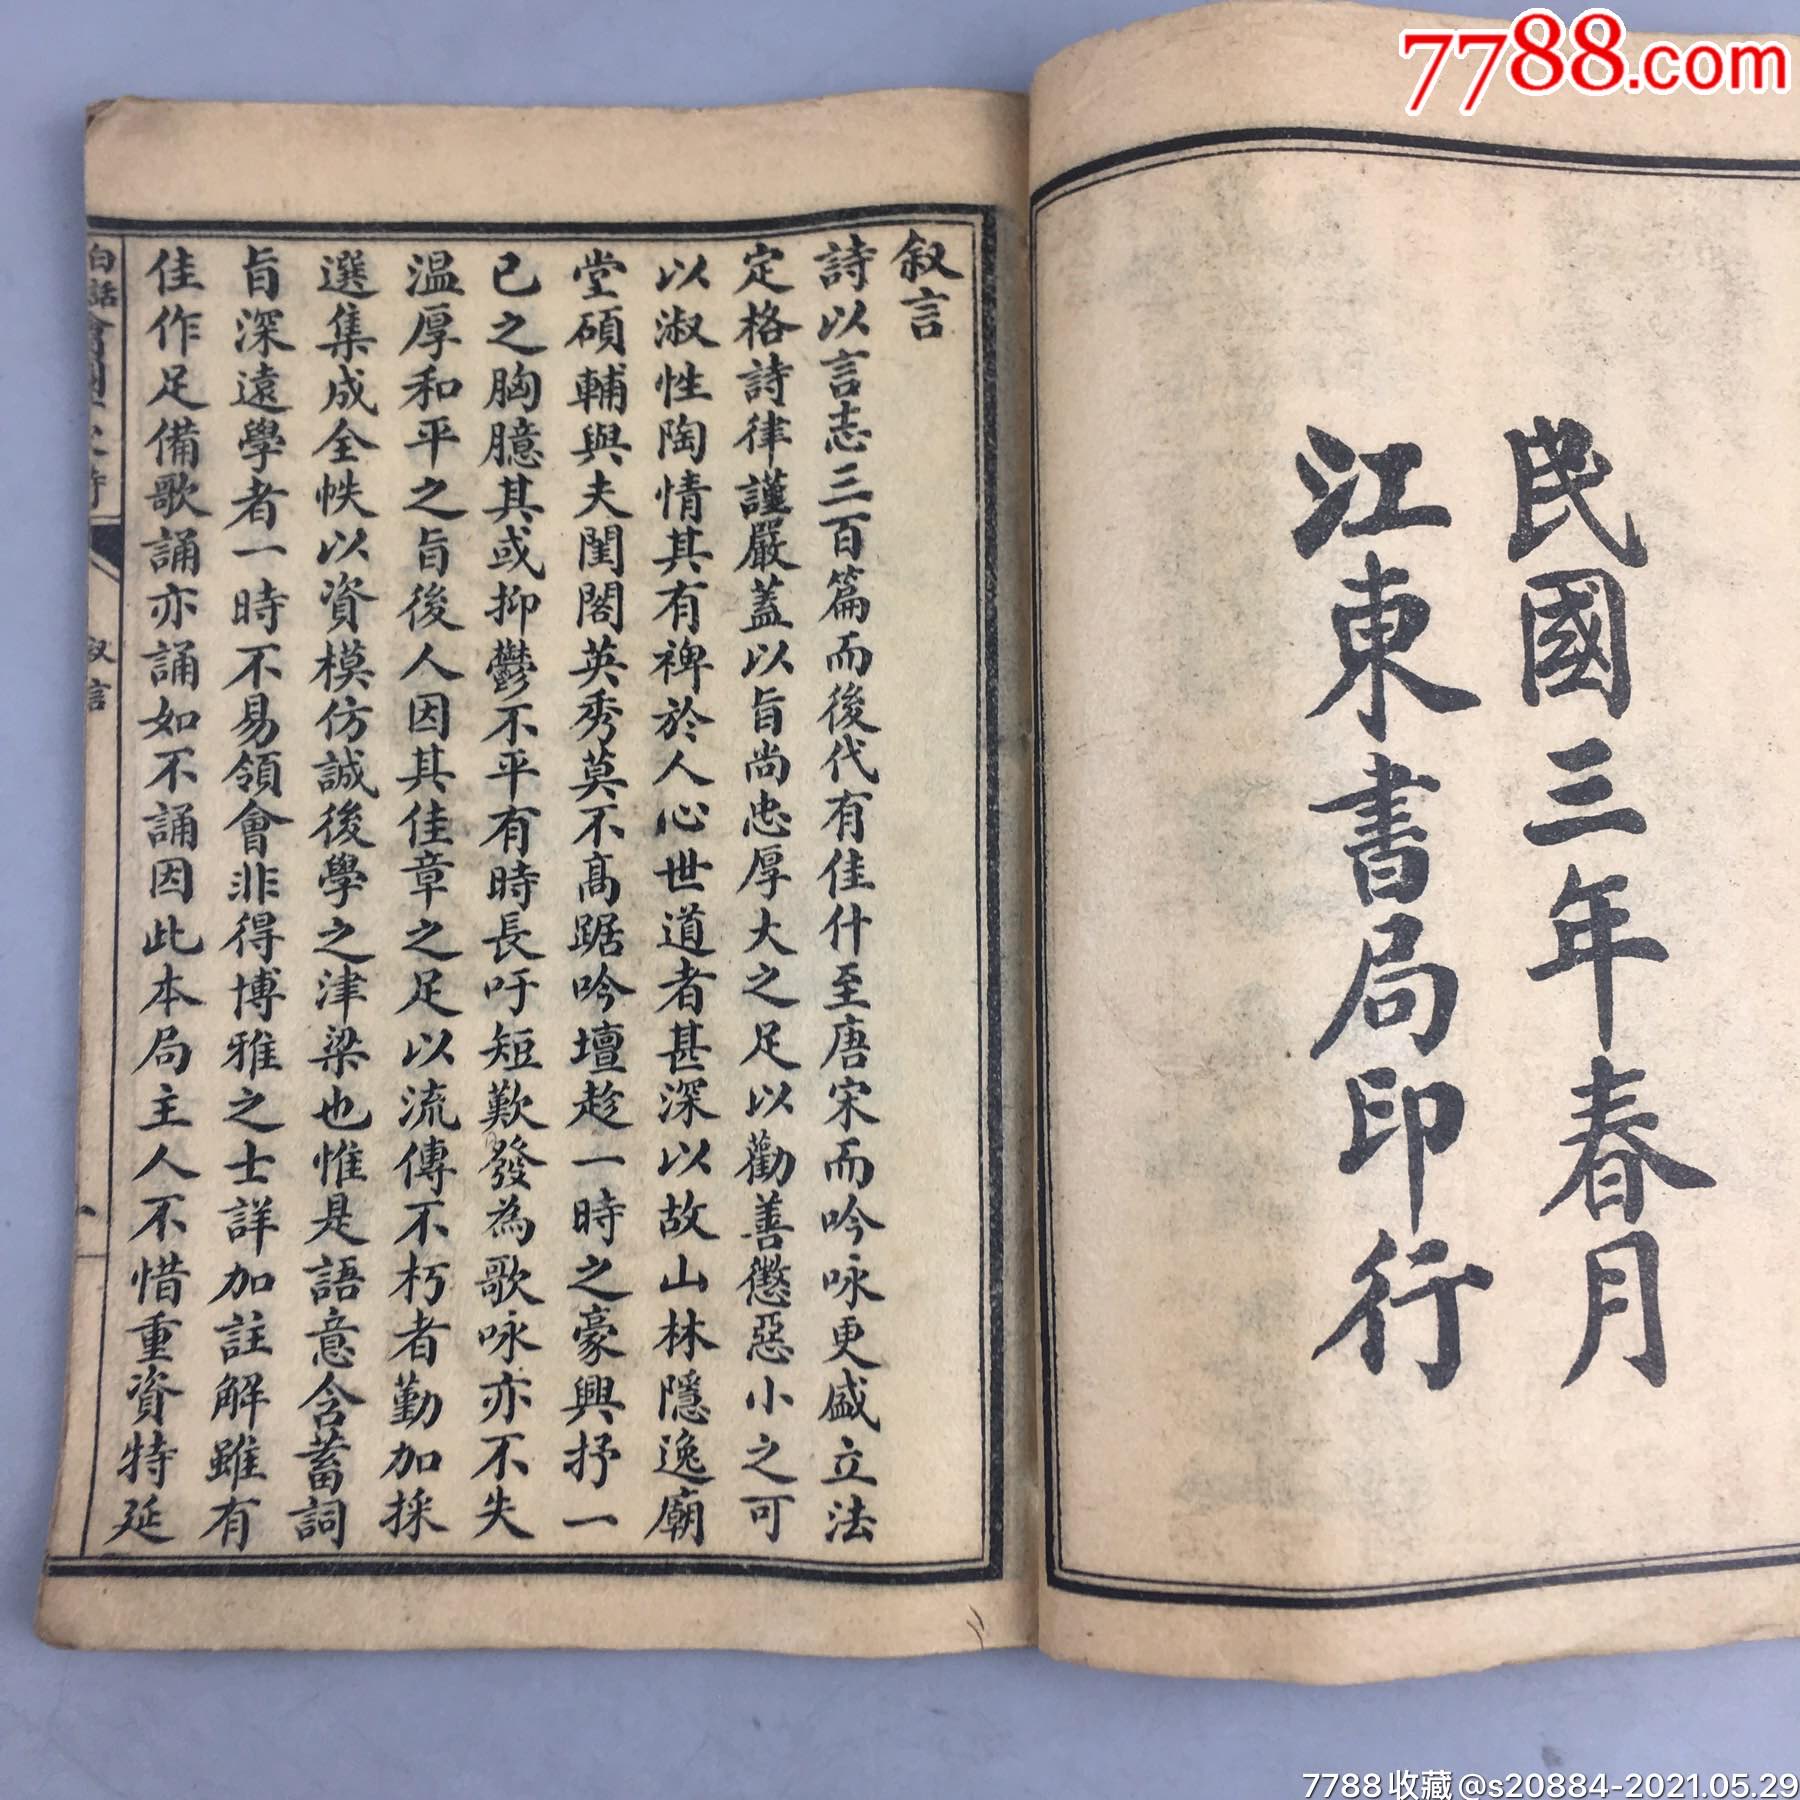 7788.com
民國三年春月
江東書局印行
叙言
詩以言志三百篇而後代有佳什至唐宋而吟咏更盛立法
定格詩律謹嚴蓋以旨尚忠厚大之足以勸善懲惡小之可
以淑性陶情其有裨於人心世道者甚深以故山林隱逸廟
堂碩輔與夫閨閣英秀莫不高踞吟壇趁一時之豪興抒一
已之胸臆其或抑鬱不平有時長吁短歎發為歌咏亦不失
温厚和平之旨後人因其佳章之足以流傳不朽者勤加採
選集成全帙以資模仿誠後學之津梁也惟是語意含蓄詞
旨深遠學者一時不易領會非得博雅之士詳加註解雖有
佳作足備歌誦亦誦如不誦因此本局主人不惜重資特延
白話會圖
叙言
7788收藏@s20884-2021.05.29